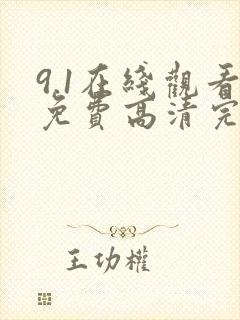 9.1在綫觀看
免費高清完
王功權